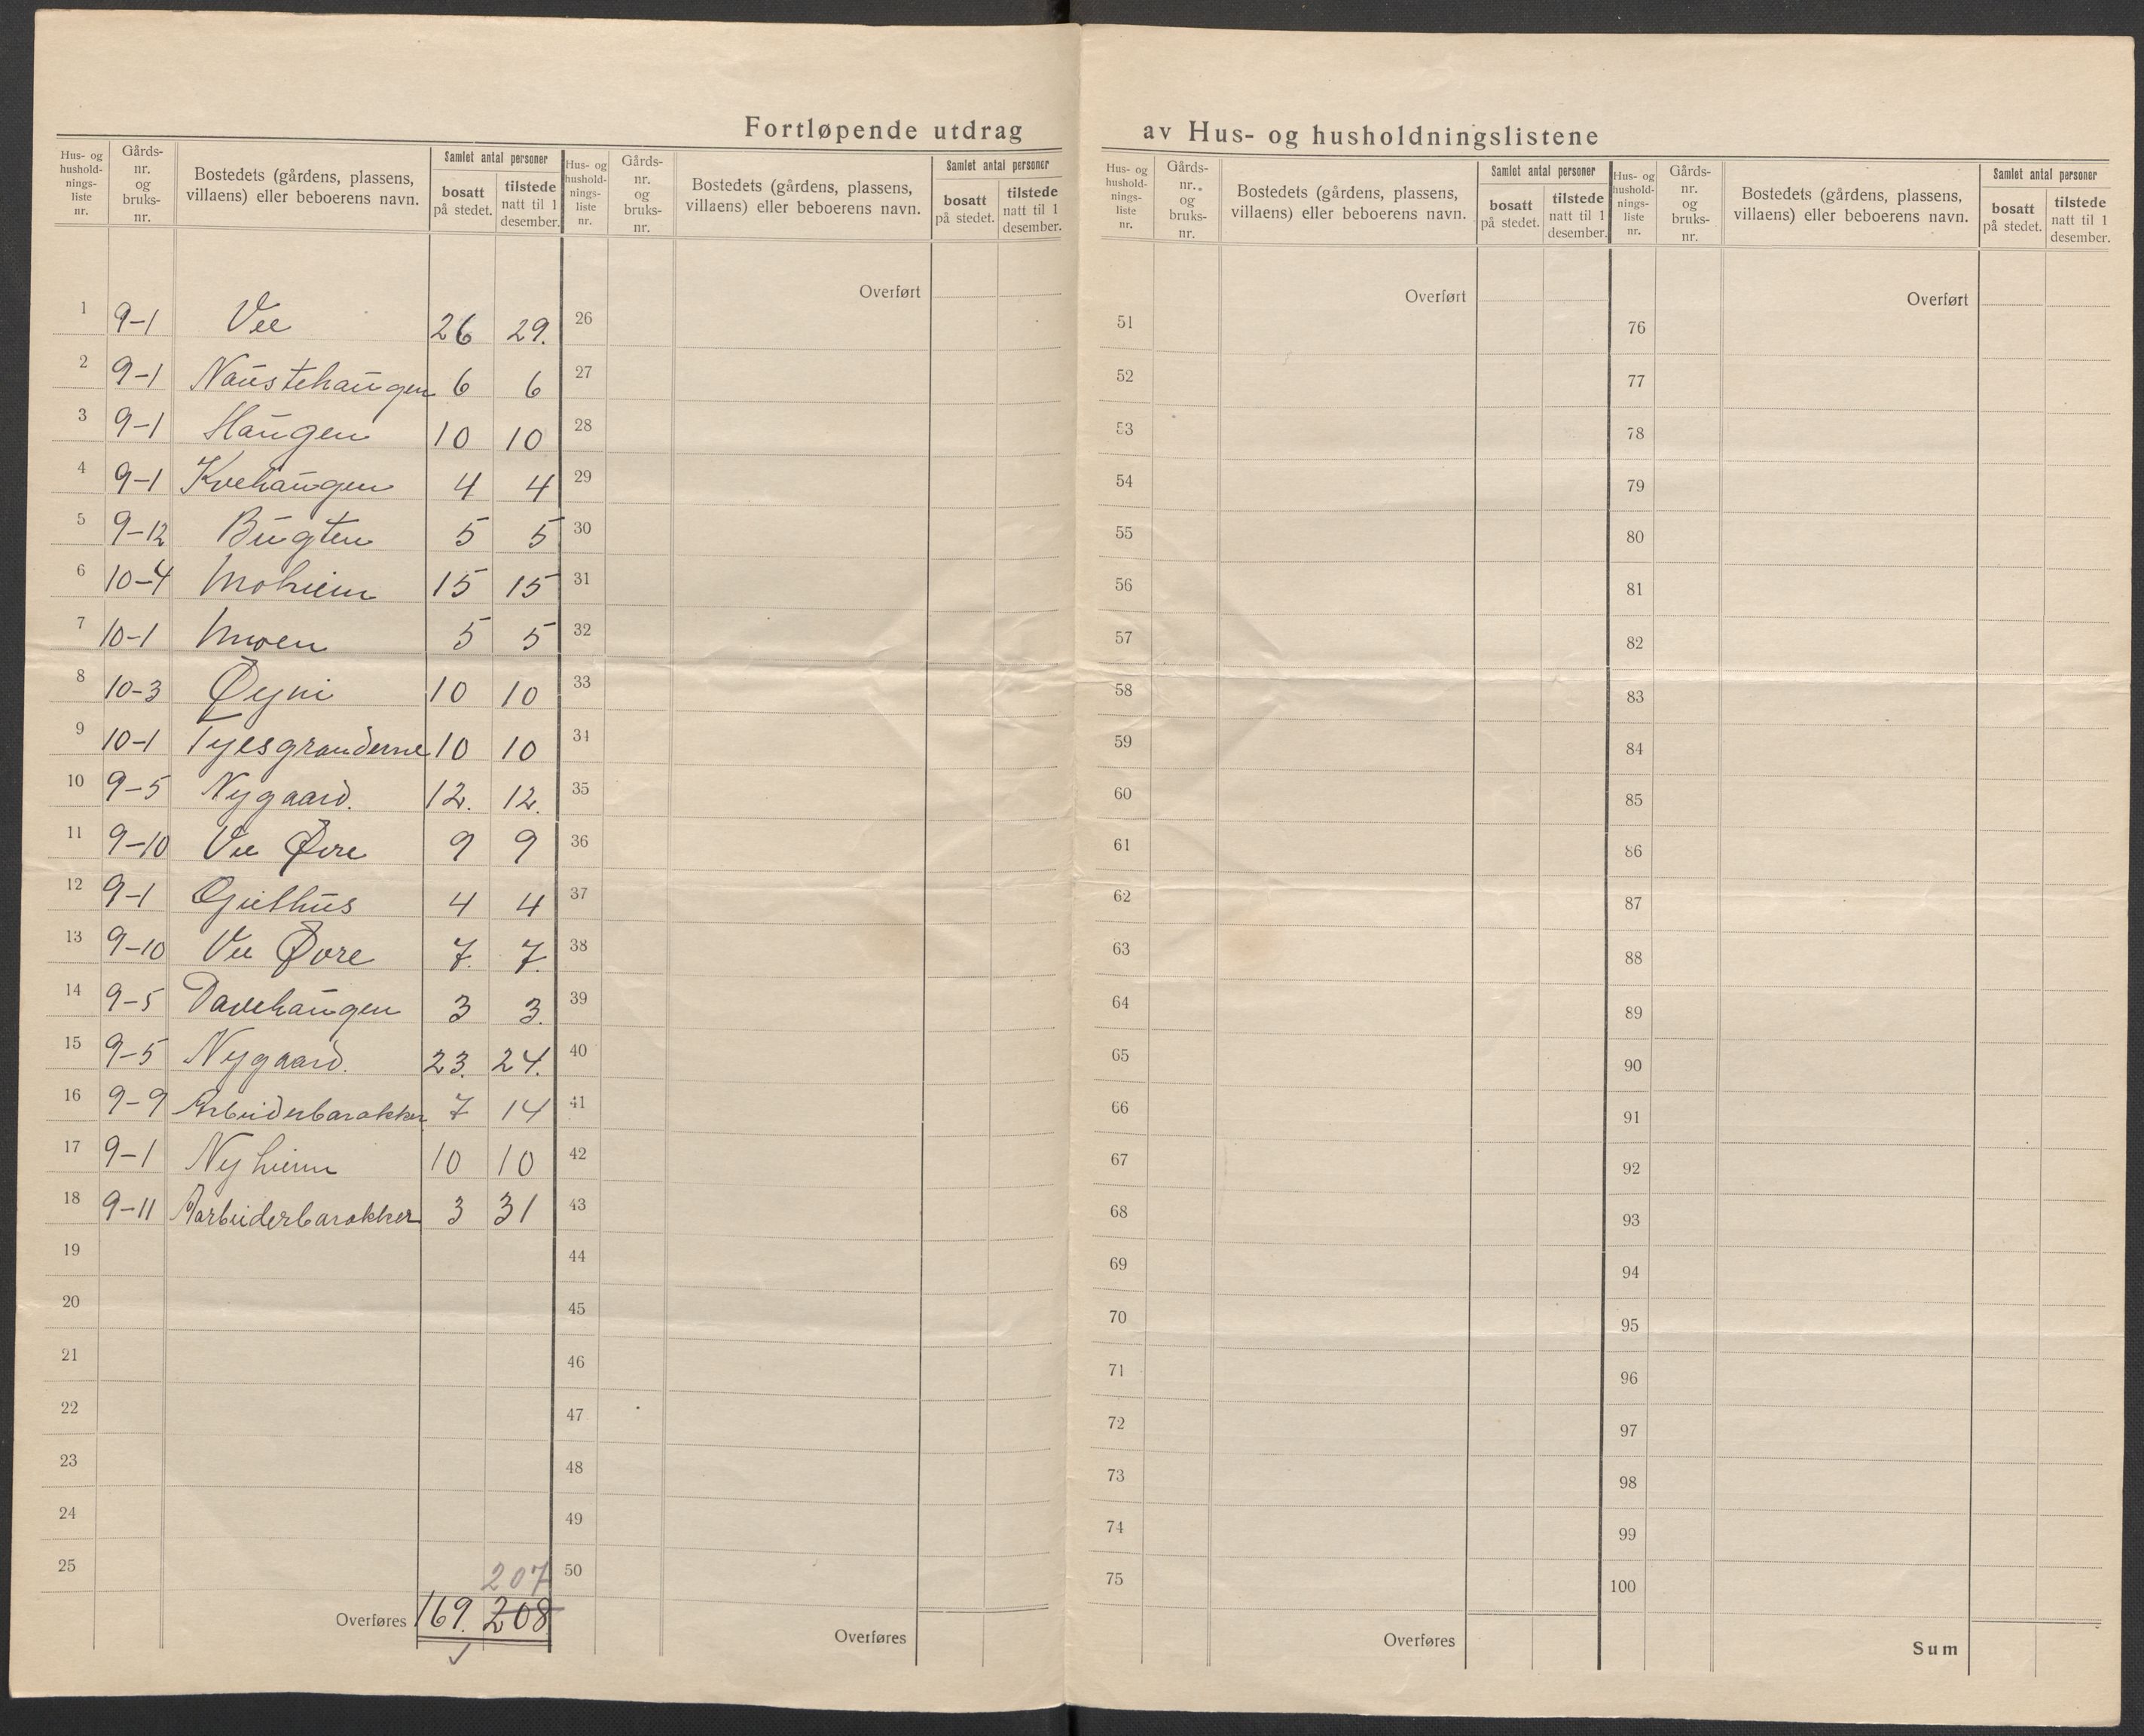 Fortløpende utdrag av Hus- og husholdningslistene
Hus- og husholdningsliste nr. | Gårds-nr. og bruks-nr. | Bostedets (gårdens, plassens, villaens) eller beboerens navn. | Samlet antal personer | bosatt på stedet. | tilstede natt til 1 desember.
1 9-1 Vee 26 29.
2 9-1 Naustehaugen 6 6
3 9-1 Haugen 10 10
4 9-1 Kvehaugen 4 4
5 9-12 Bugten 5 5
6 10-4 Moheim 15 15
7 10-1 Moen 5 5
8 10-3 Øyni 10 10
9 10-1 Tyesgranderne 10 10
10 9-5 Nygaard. 12. 12.
11 9-10 Vee Øvre 9 9
12 9-1 4 4
13 9-10 Vee Øvre 7. 7.
14 9-5 Davehaugen 3 3.
15 9-5 Nygaard. 23. 24.
16 9-9 Arbeiderbarakker 7 14
17 9-1 Nyheim 10 10
18 9-11 Aarbeiderbarakker 3 31
19
20
21
22
23
24
25 207
Overføres 169. 208
Hus- og husholdningsliste nr. | Gårds-nr. og bruks-nr. | Bostedets (gårdens, plassens, villaens) eller beboerens navn. | Samlet antal personer | bosatt på stedet. | tilstede natt til 1 desember.
Overført
26
27
28
29
30
31
32
33
34
35
36
37
38
39
40
41
42
43
44
45
46
47
48
49
50
Overføres
Hus- og husholdningsliste nr. | Gårds-nr. og bruks-nr. | Bostedets (gårdens, plassens, villaens) eller beboerens navn. | Samlet antal personer | bosatt på stedet. | tilstede natt til 1 desember.
Overført
51
52
53
54
55
56
57
58
59
60
61
62
63
64
65
66
67
68
69
70
71
72
73
74
75
Overføres
Hus- og husholdningsliste nr. | Gårds-nr. og bruks-nr. | Bostedets (gårdens, plassens, villaens) eller beboerens navn. | Samlet antal personer | bosatt på stedet. | tilstede natt til 1 desember.
Overført
76
77
78
79
80
81
82
83
84
85
86
87
88
89
90
91
92
93
94
95
96
97
98
99
100
Sum